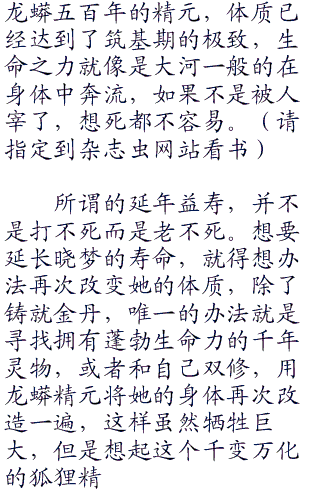 龙蟒五百年的精元，体质已
经达到了筑基期的极致，生
命之力就像是大河一般的在
身体中奔流，如果不是被人
宰了，想死都不容易。（请
指定到杂志虫网站看书）
所谓的延年益寿，并不
是打不死而是老不死。想要
延长晓梦的寿命，就得想办
法再次改变她的体质，除了
铸就金丹，唯一的办法就是
寻找拥有蓬勃生命力的千年
灵物，或者和自己双修，用
龙蟒精元将她的身体再次改
造一遍，这样虽然牺牲巨
大，但是想起这个千变万化
的狐狸精